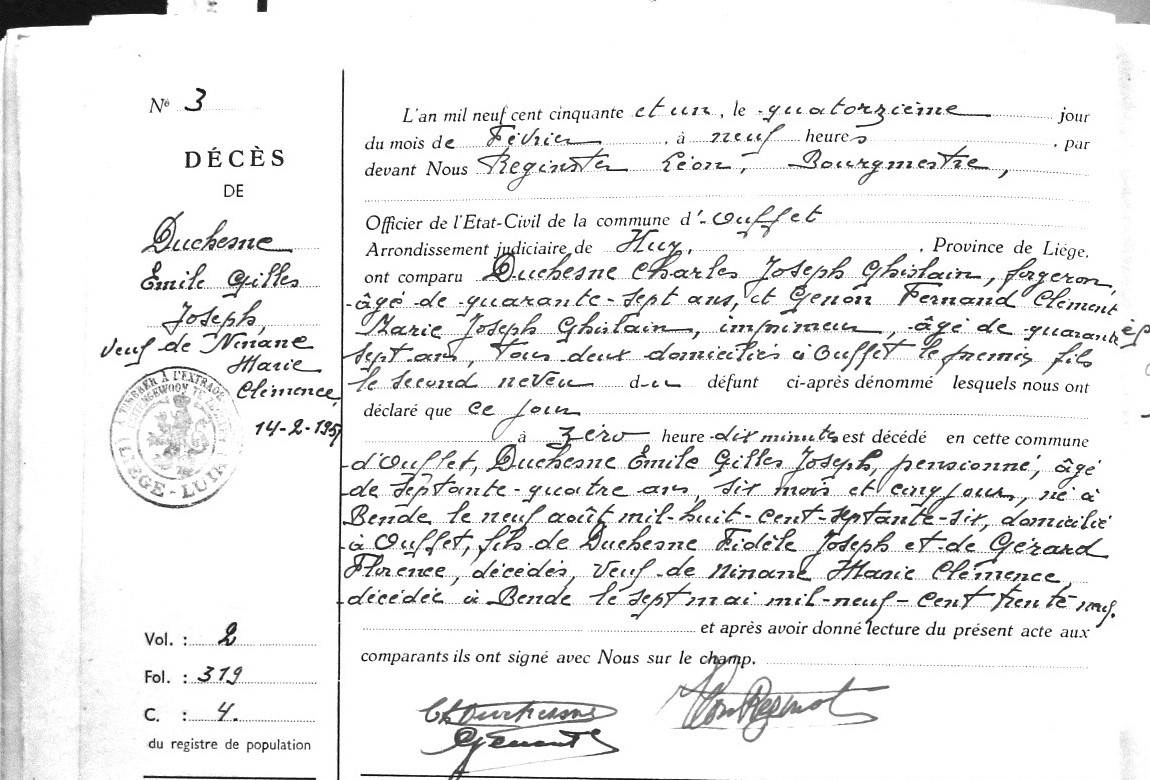 N° 3
DÉCÈS
DE
Duchesne
Emile Gilles
Joseph,
Veuf de Ninane
Marie
Clémence,
14-2-1951
A TIMBRER A L'EXTRAORD
LIÉGE-LUIK
Vol. : 2
Fol. : 319
C. : 4.
du registre de population
L'an mil neuf cent cinquante et un, le quatorzième jour
du mois de Février, à neuf heures, par
devant Nous Reginster Léon, Bourgmestre,
Officier de l'Etat-Civil de la commune d'Ouffet
Arrondissement judiciaire de Huy, Province de Liége,
ont comparu Duchesne Charles Joseph Ghislain, forgeron,
âgé de quarante-sept ans, et Genon Fernand Clément
Marie Joseph Ghislain, imprimeur, âgé de quarante
sept ans, tous deux domiciliés à Ouffet le premier fils
le second neveu du défunt ci-après dénommé lesquels nous ont
déclaré que ce jour
à zéro heure dix minutes est décédé en cette commune
d'Ouffet, Duchesne Emile Gilles Joseph, pensionné, âgé
de septante-quatre ans, six mois et cinq jours, né à
Bende le neuf août mil-huit-cent-septante-six, domicilié
à Ouffet, fils de Duchesne Fidèle Joseph et de Gérard
Florence, décédés, Veuf de Ninane Marie Clémence,
décédée à Bende le sept mai mil-neuf-cent trente neuf.
et après avoir donné lecture du présent acte aux
comparants ils ont signé avec Nous sur le champ.
Ch Duchesne